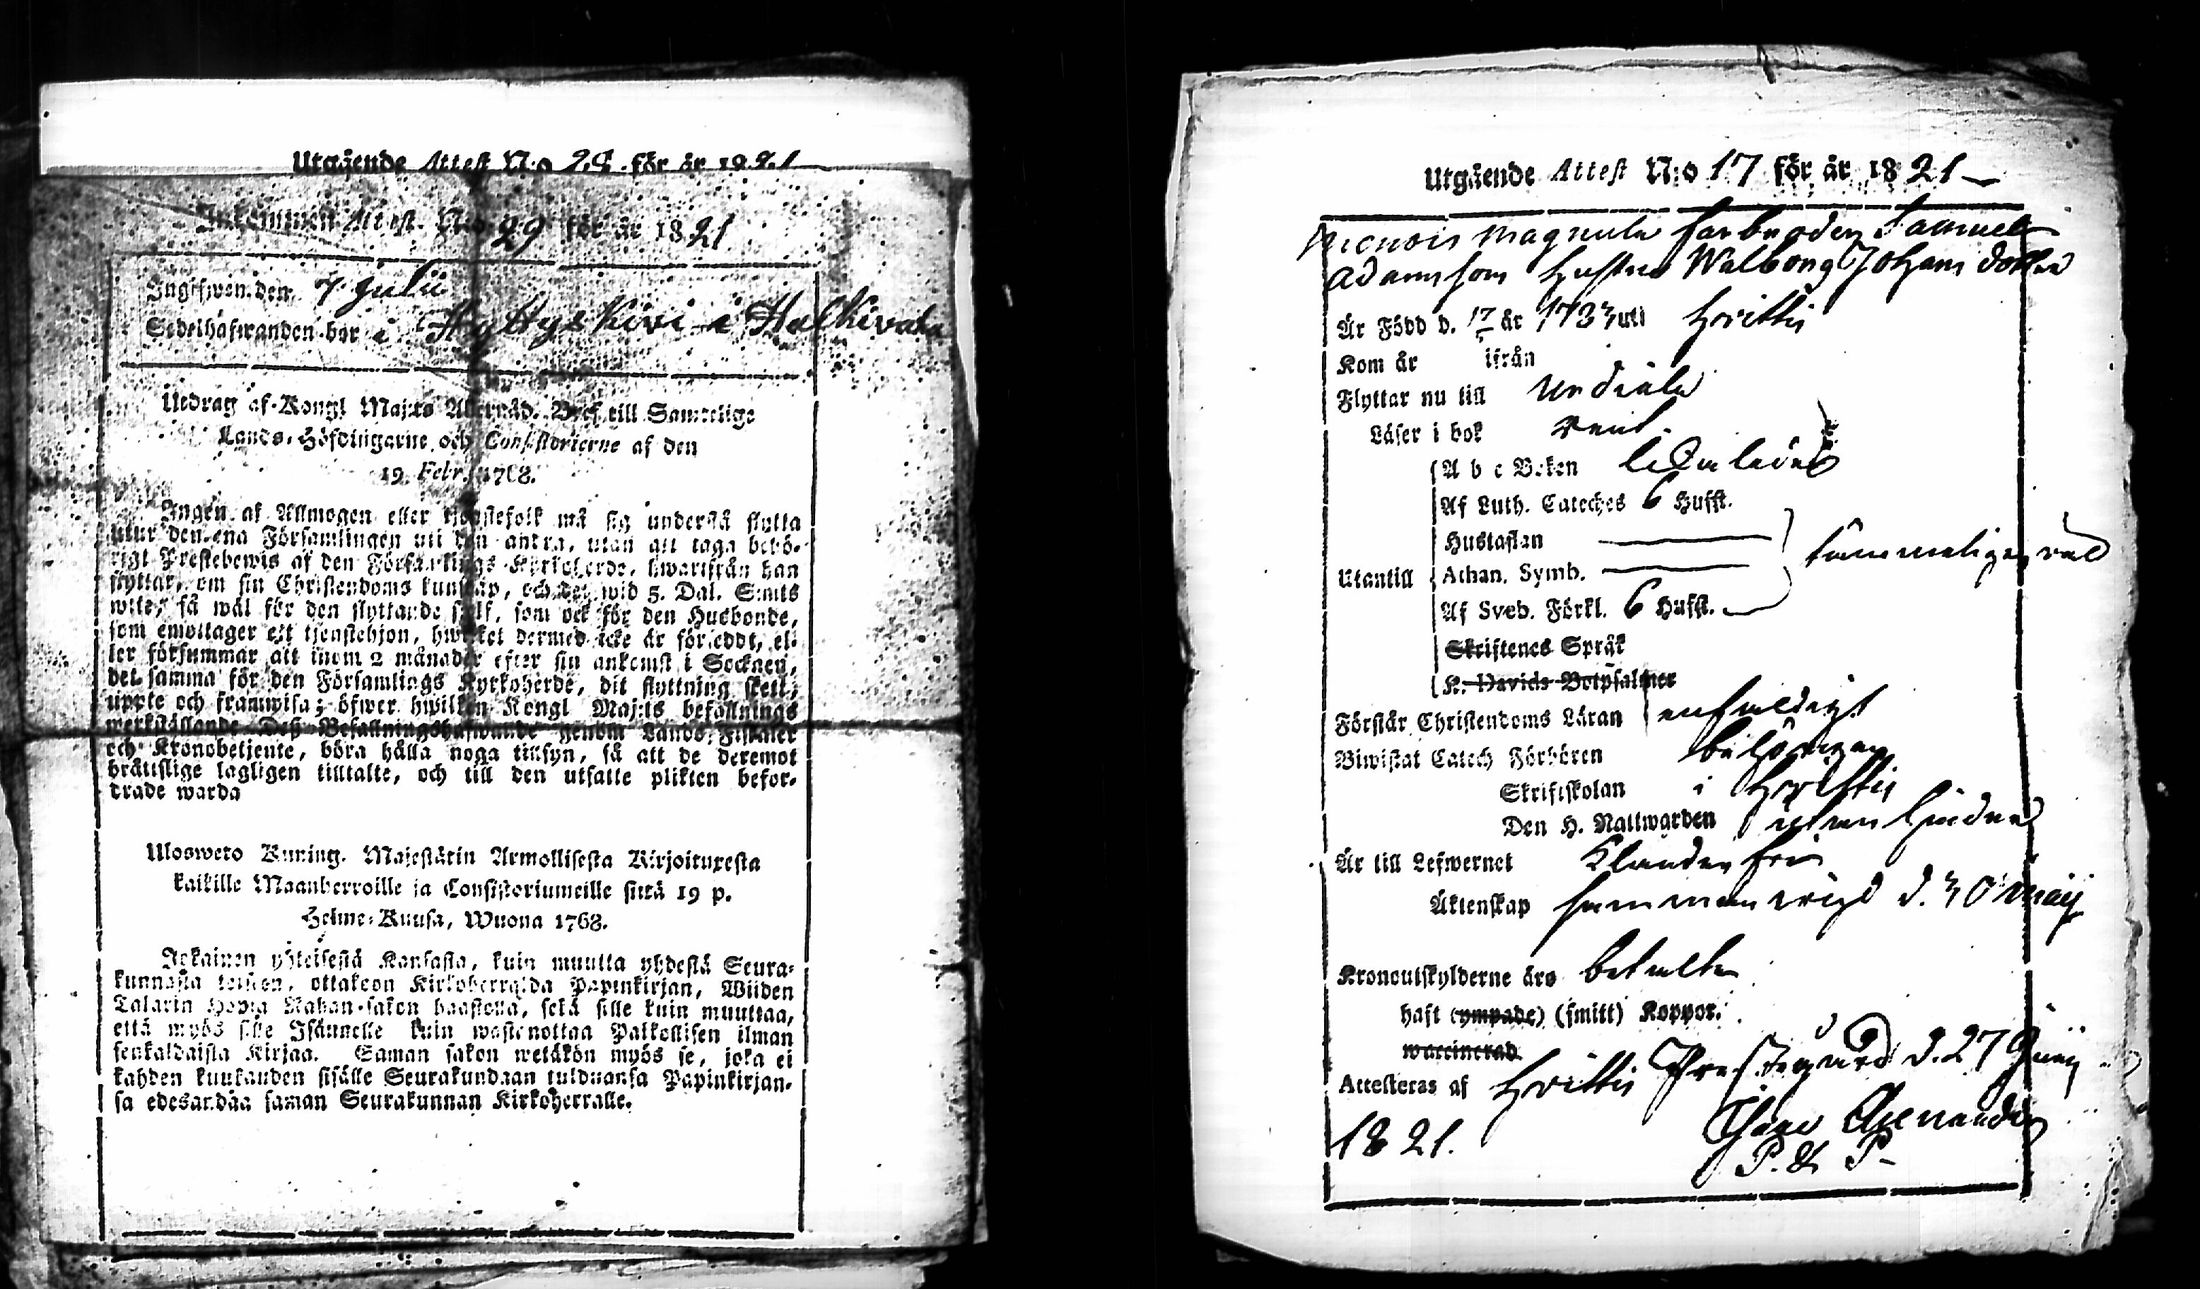 Utgående Attest N:o 28. för år 1821
Inkommen Attest. N:o 29 för år 1821
Ingifwen den 7 Julii
Sedelhafwanden bor i Hyttyskivi i Halkivaha
Utdrag af Kongl Maj:ts Allernåd. Bref till Samtelige
Lands-Höfdingarne och Consistorierne af den
19 Febr. 1768.
Ingen af Allmogen eller tjenstefolk må sig understå flytta
utur den ena Församlingen uti den antra, utan att taga behö-
rigt Prestebewis af den Församlings Kyrkoherde, hwarifrån han
flyttar, om sin Christendoms kunskap, och det wid 5. Dal. S:mts
wite, så wäl för den flyttande sjelf, som ock för den Husbonde,
som emottager ett tjenstehjon, hwilket dermed icke är försedt, el-
ler försummar att inom 2 månader efter sin ankomst i Socknen,
det samma för den Församlings Kyrkoherde, dit flyttning skett,
uppte och framwisa; öfwer hwilken Kongl Maj:ts befallnings
werkställande Deß Befallningshafwande genom Lands-Fiskaler
och Kronobetjente, böra hålla noga tillsyn, så att de deremot
bråttslige lagligen tilltalte, och till den utsatte plikten befor-
drade warda
Ulosweto Kuning. Majestätin Armollisesta Kirjoituxesta
kaikille Maanherroille ja Consistoriumeille siitä 19 p.
Helme-Kuusa, Wuona 1768.
Jokainen yhteisestä Kansasta, kuin muutta yhdestä Seura-
kunnasta toiseen, ottakoon Kirkoherralda Papinkirjan, Wiiden
Talarin Hopia Rahan-sakon haastolla, sekä sille kuin muuttaa,
että myös sille Isännelle kuin wastanottaa Palkollisen ilman
senkaldaista Kirjaa. Saman sakon wetäkön myös se, joka ei
kahden kuukauden sisälle Seurakundaan tulduansa Papinkirjan-
sa edesandaa saman Seurakunnan Kirkoherralle.
Utgående Attest N:o 17 för år 1821
Magnula farbroden Samuel
Adamsson hustru Walborg Johans dotter
Är Född d. 17 år 1783 uti Hvittis
Kom år ifrån
Flyttar nu till Urdiala
Läser i bok rent
A b c Boken likaledes
Af Luth. Cateches 6 Hufst.
Hustaflan
Utantill Athan. Symb. tämmeligen väl
Af Sveb. Förkl. 6 Hufst.
Skriftenes Språk
K. Davids Botpsalmer
Förstår Christendoms Läran enfaldigt
Biwistat Catech Förhören behörigen
Skriftskolan i Hvittis
Den H. Nattwarden utan hinder
Är till Lefwernet Klanderfri
Äktenskap sammanvigd d. 30 Maij
Kronoutskylderne äro betalte
haft (ympade) (smitt) Koppor.
waccinerad
Attesteras af Hvittis Prestegård d. 27 Junij
1821.
P. & P.